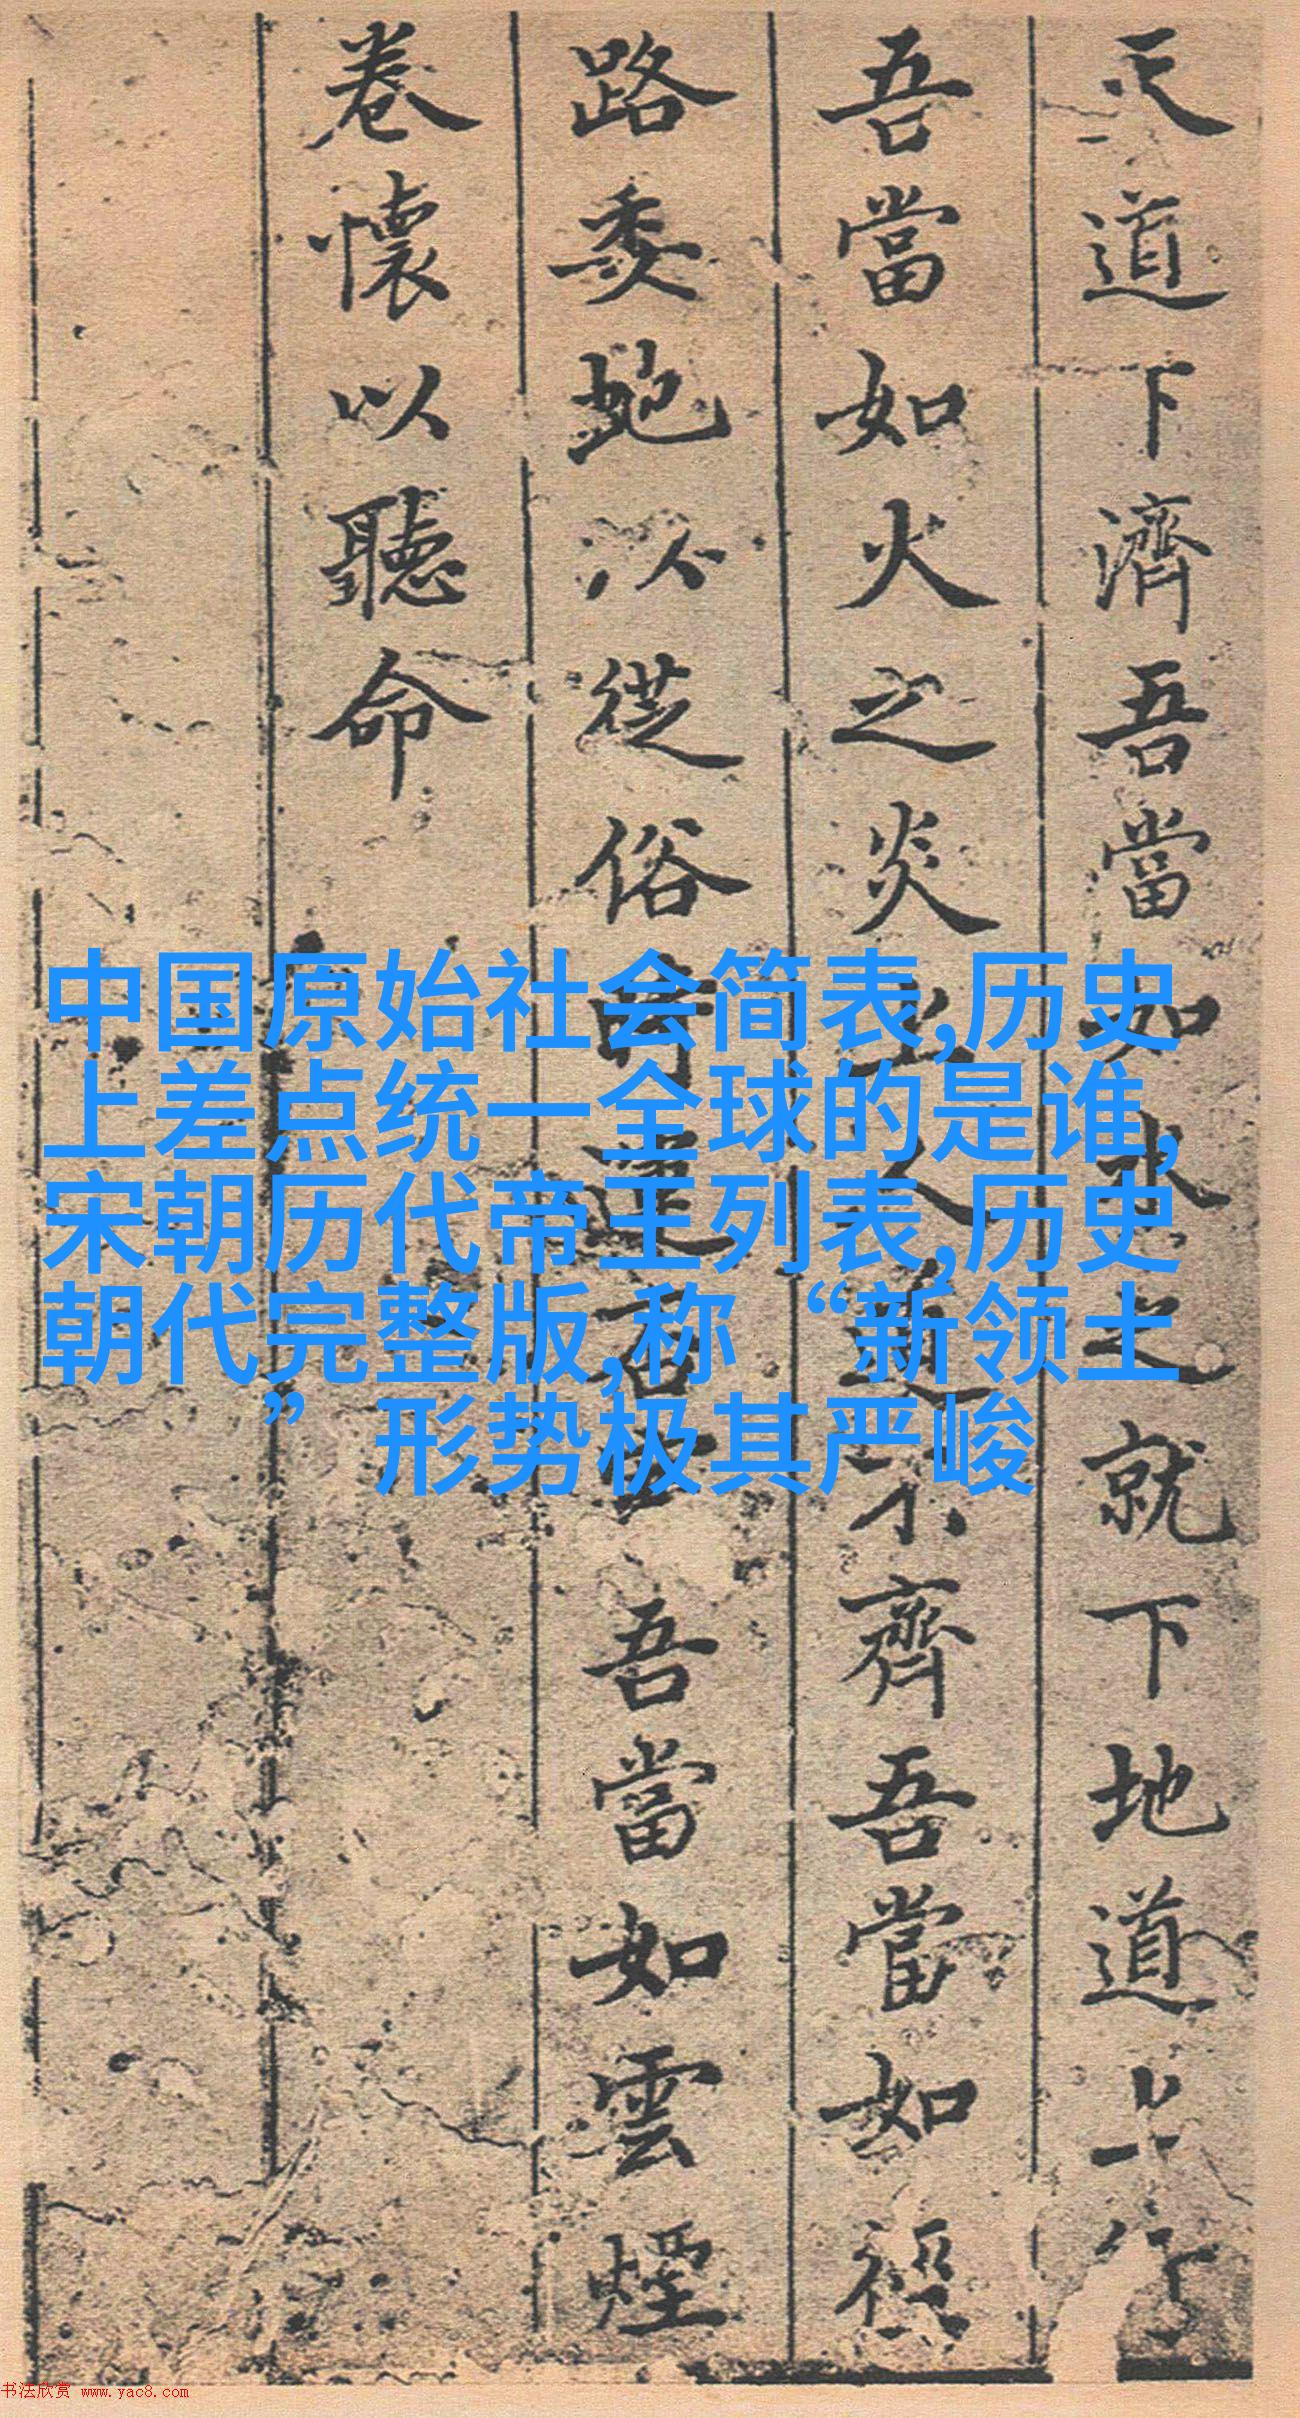 天道下濟吾當如水之就下地道上行
吾當如火之炎上人道不齊吾當如徑
路委虵以從俗時運否吾當如雲煙
卷懷以聽命
中国原始社会简表,历史
上差点统一全球的是谁,
宋朝历代帝王列表,历史
朝代完整版,称“新领土
”形势极其严峻
书法欣赏 www.yac8.com